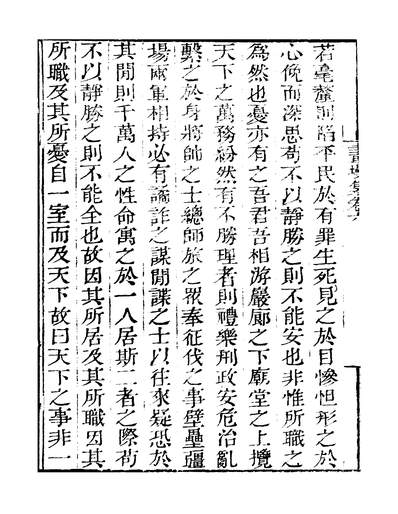 若毫釐則陷平民於有罪生死見之於目慘怛形之於
心俛而深思苟不以靜勝之則不能安也非惟所職之
為然也憂亦有之吾君吾相游巖廊之下廟堂之上攬
天下之萬務紛然有不勝理者則禮樂刑政安危治亂
繫之於身將帥之士總師旅之眾奉征伐之事壁壘疆
場兩軍相持必有譎詐之謀間諜之士以往來疑恐於
其間則千萬人之性命寓之於一人居斯二者之際苟
不以靜勝之則不能全也故因其所居及其所職因其
所職及其所憂自一室而及天下故曰天下之事非一